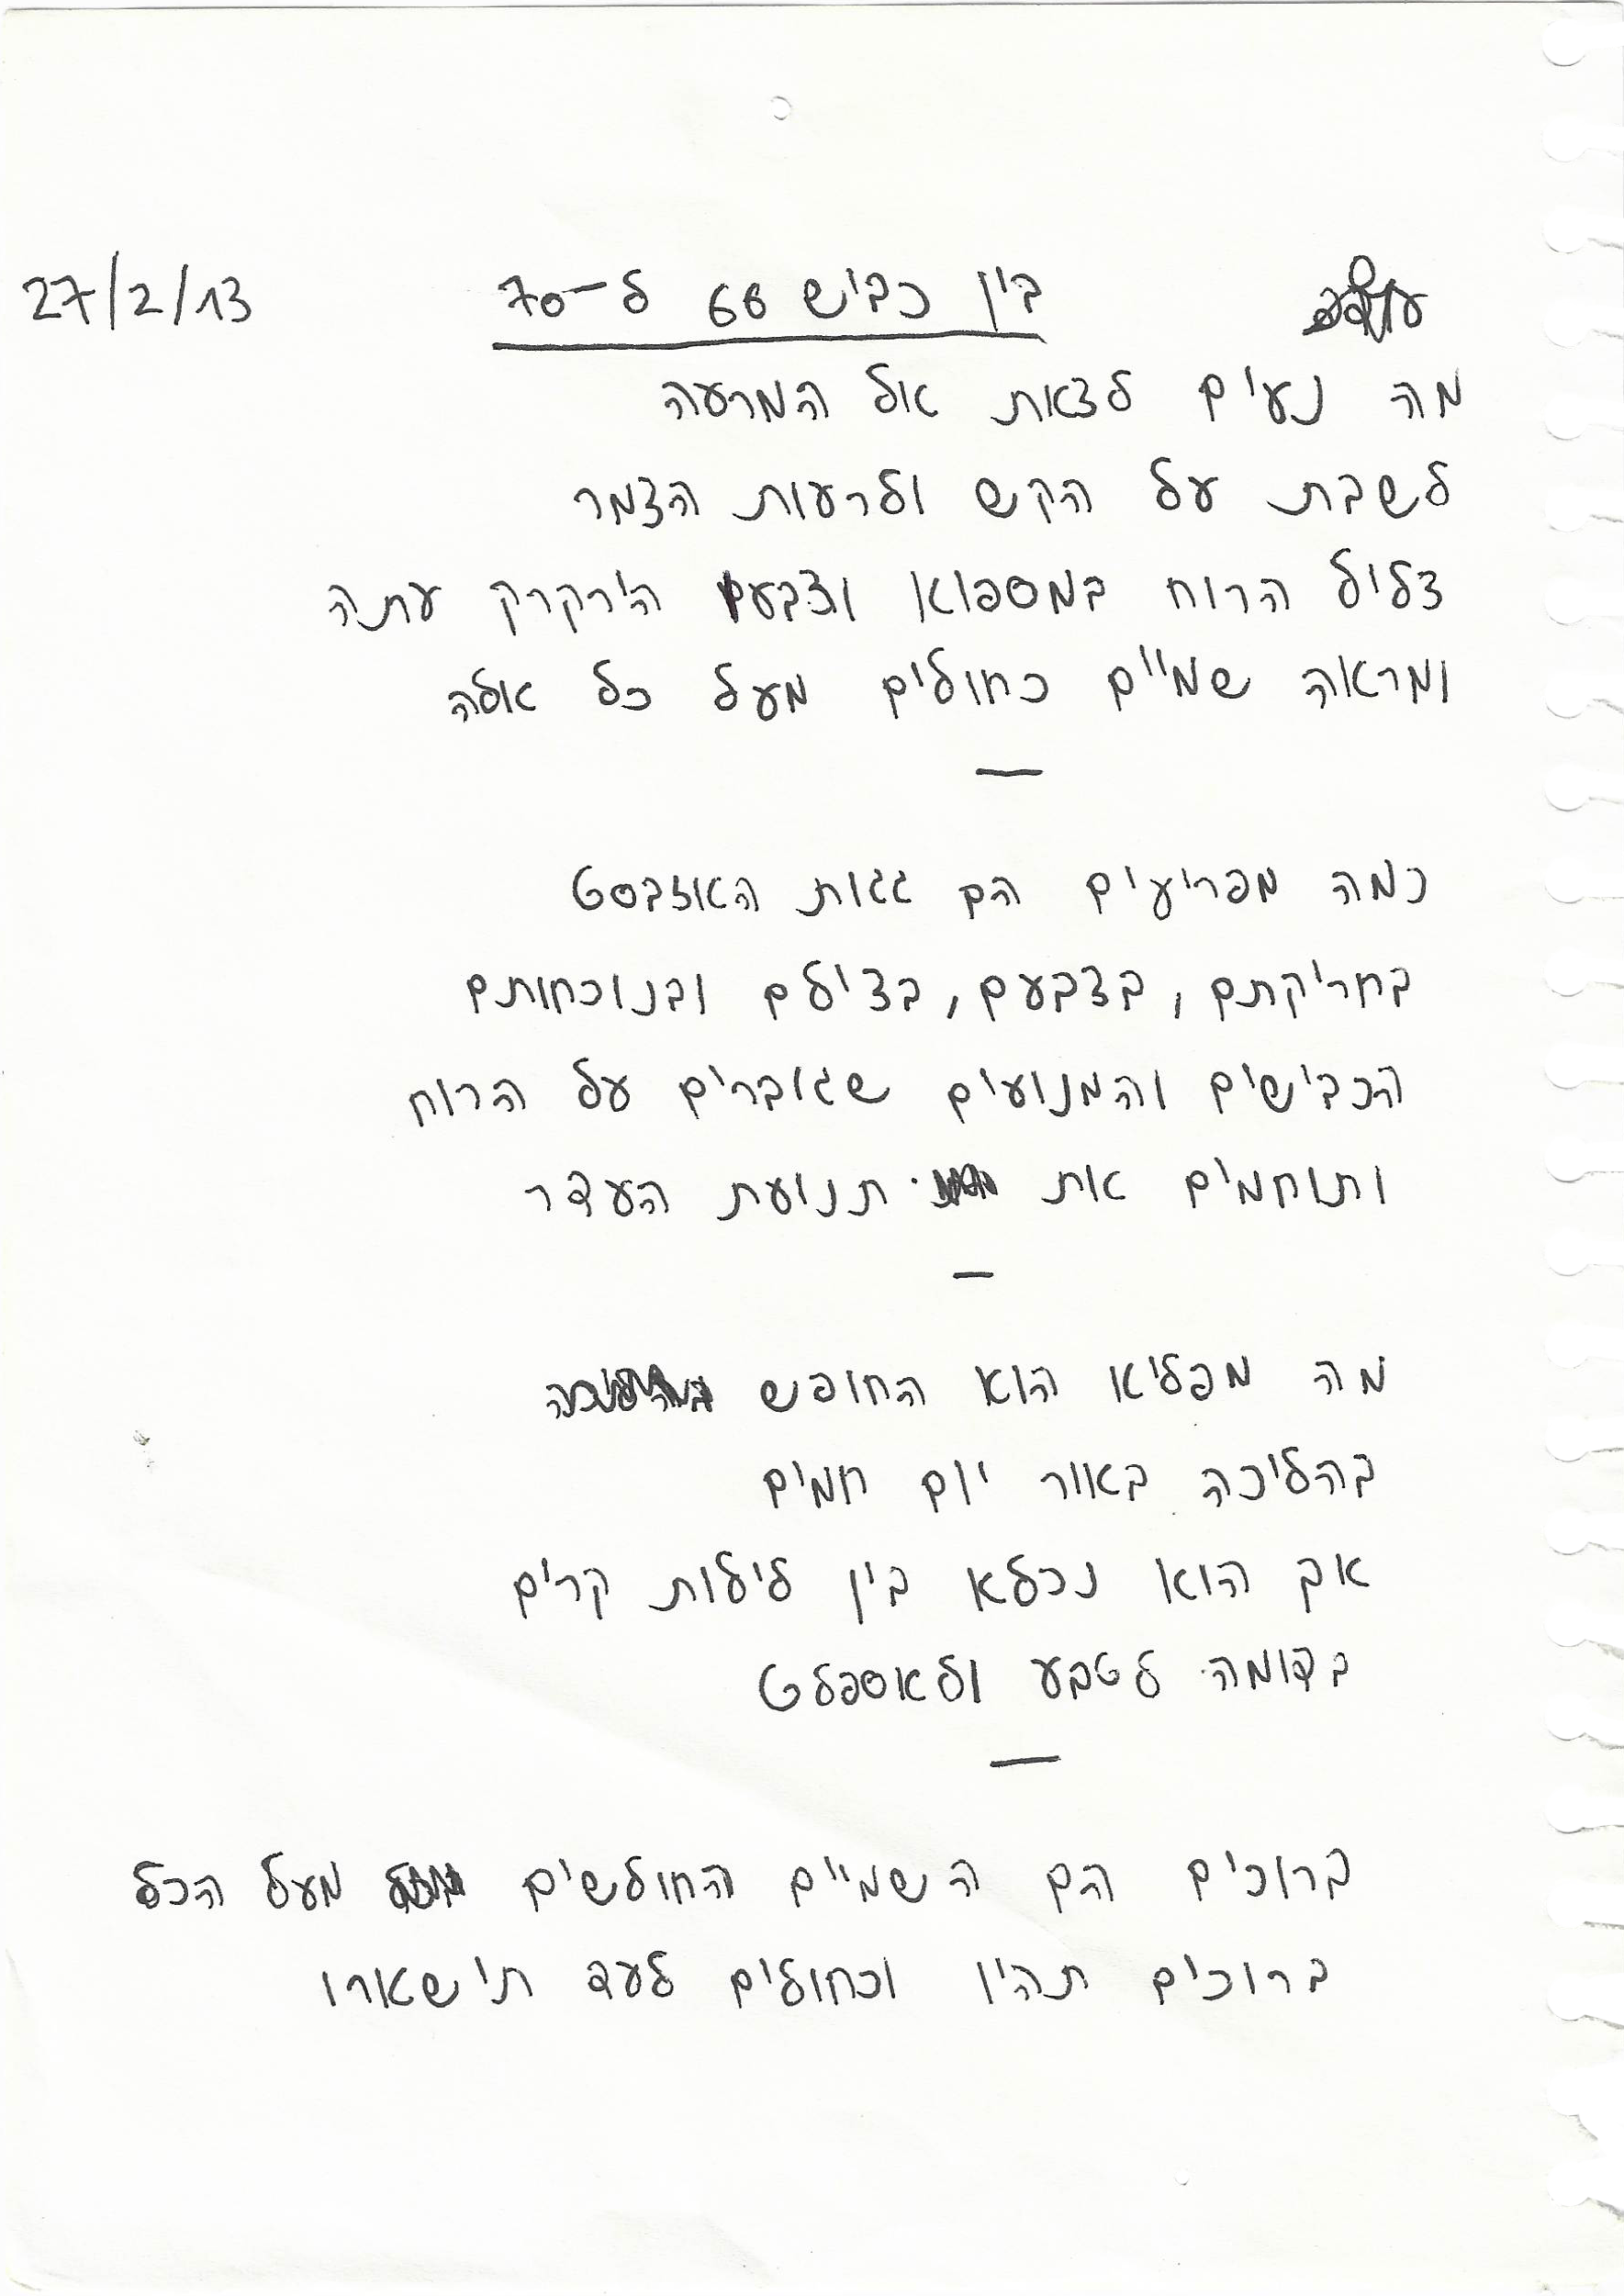 בין כביש 66 ל-70 27/2/13
מה נעים לצאת אל המרעה
לשבת על הקש ולרעות הצמר
צליל הרוח במספוא וצבעו הירקרק עתה
ומראה שמיים כחולים מעל כל אלה
כמה מפריעים הם גגות האזבסט
בחריקתם, בצבעם, בצילם ובנוכחותם
הכבישים והמנועים שגוברים על הרוח
ותוחמים את תנועת העדר
מה מפליא הוא החופש
בהליכה באור יום חמים
אך הוא נכלא בין לילות קרים
בדומה לטבע ולאספלט
ברוכים הם השמיים החולשים מעל הכל
ברוכים תהיו וכחולים לעד תישארו